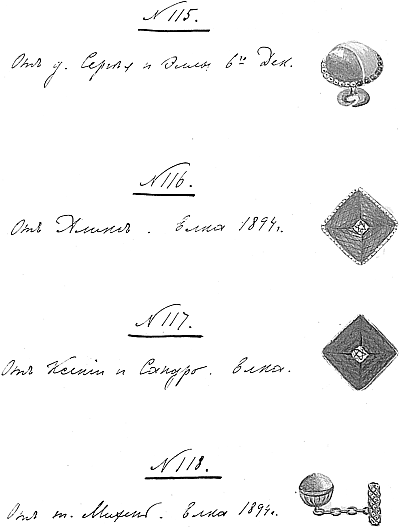 N 115.
Отъ д. Сергѣя и Эллы 6го Дек.
N 116.
Отъ Аликсъ. Елка 1894 г.
N 117.
Отъ Ксеніи и Сандро. Елка.
N 118.
Отъ т. Михень. Елка 1894 г.